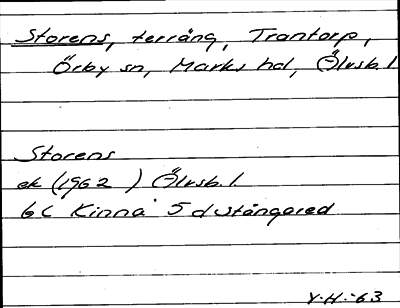 Storens, terräng, Trantorp,
Örby sn, Marks hd, Älvsb. l
Storens
ek (1962) Älvsb. l.
6C Kinna 5 d Ustångared
Y.H.-63